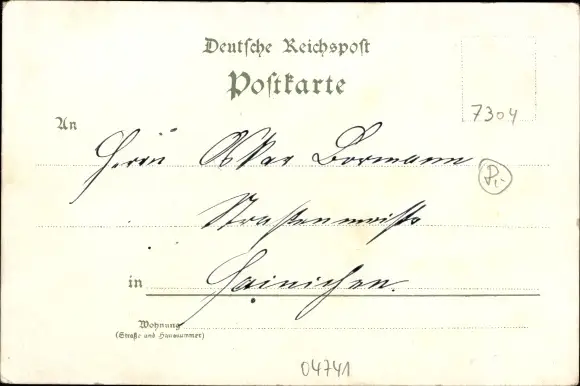 Deutsche Reichspost
Postkarte
7304
An
Herrn Oskar Bormann
Straßenmeister
in Hainichen.
Wohnung
(Straße und Hausnummer)
04741